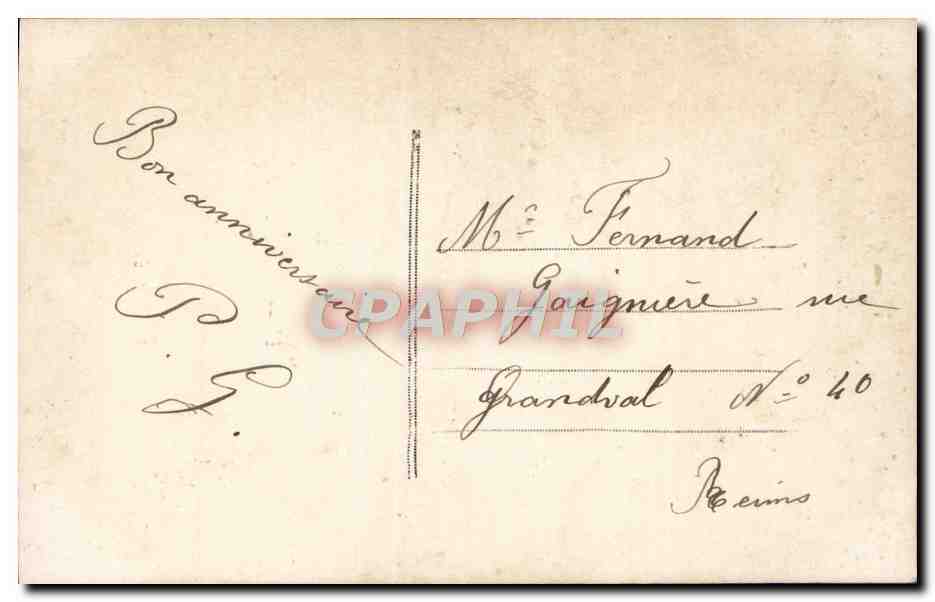 Bon anniversaire
P. G.
Mr Fernand
Gaignière rue
Grandval No 40
Reims
CPAPHIL